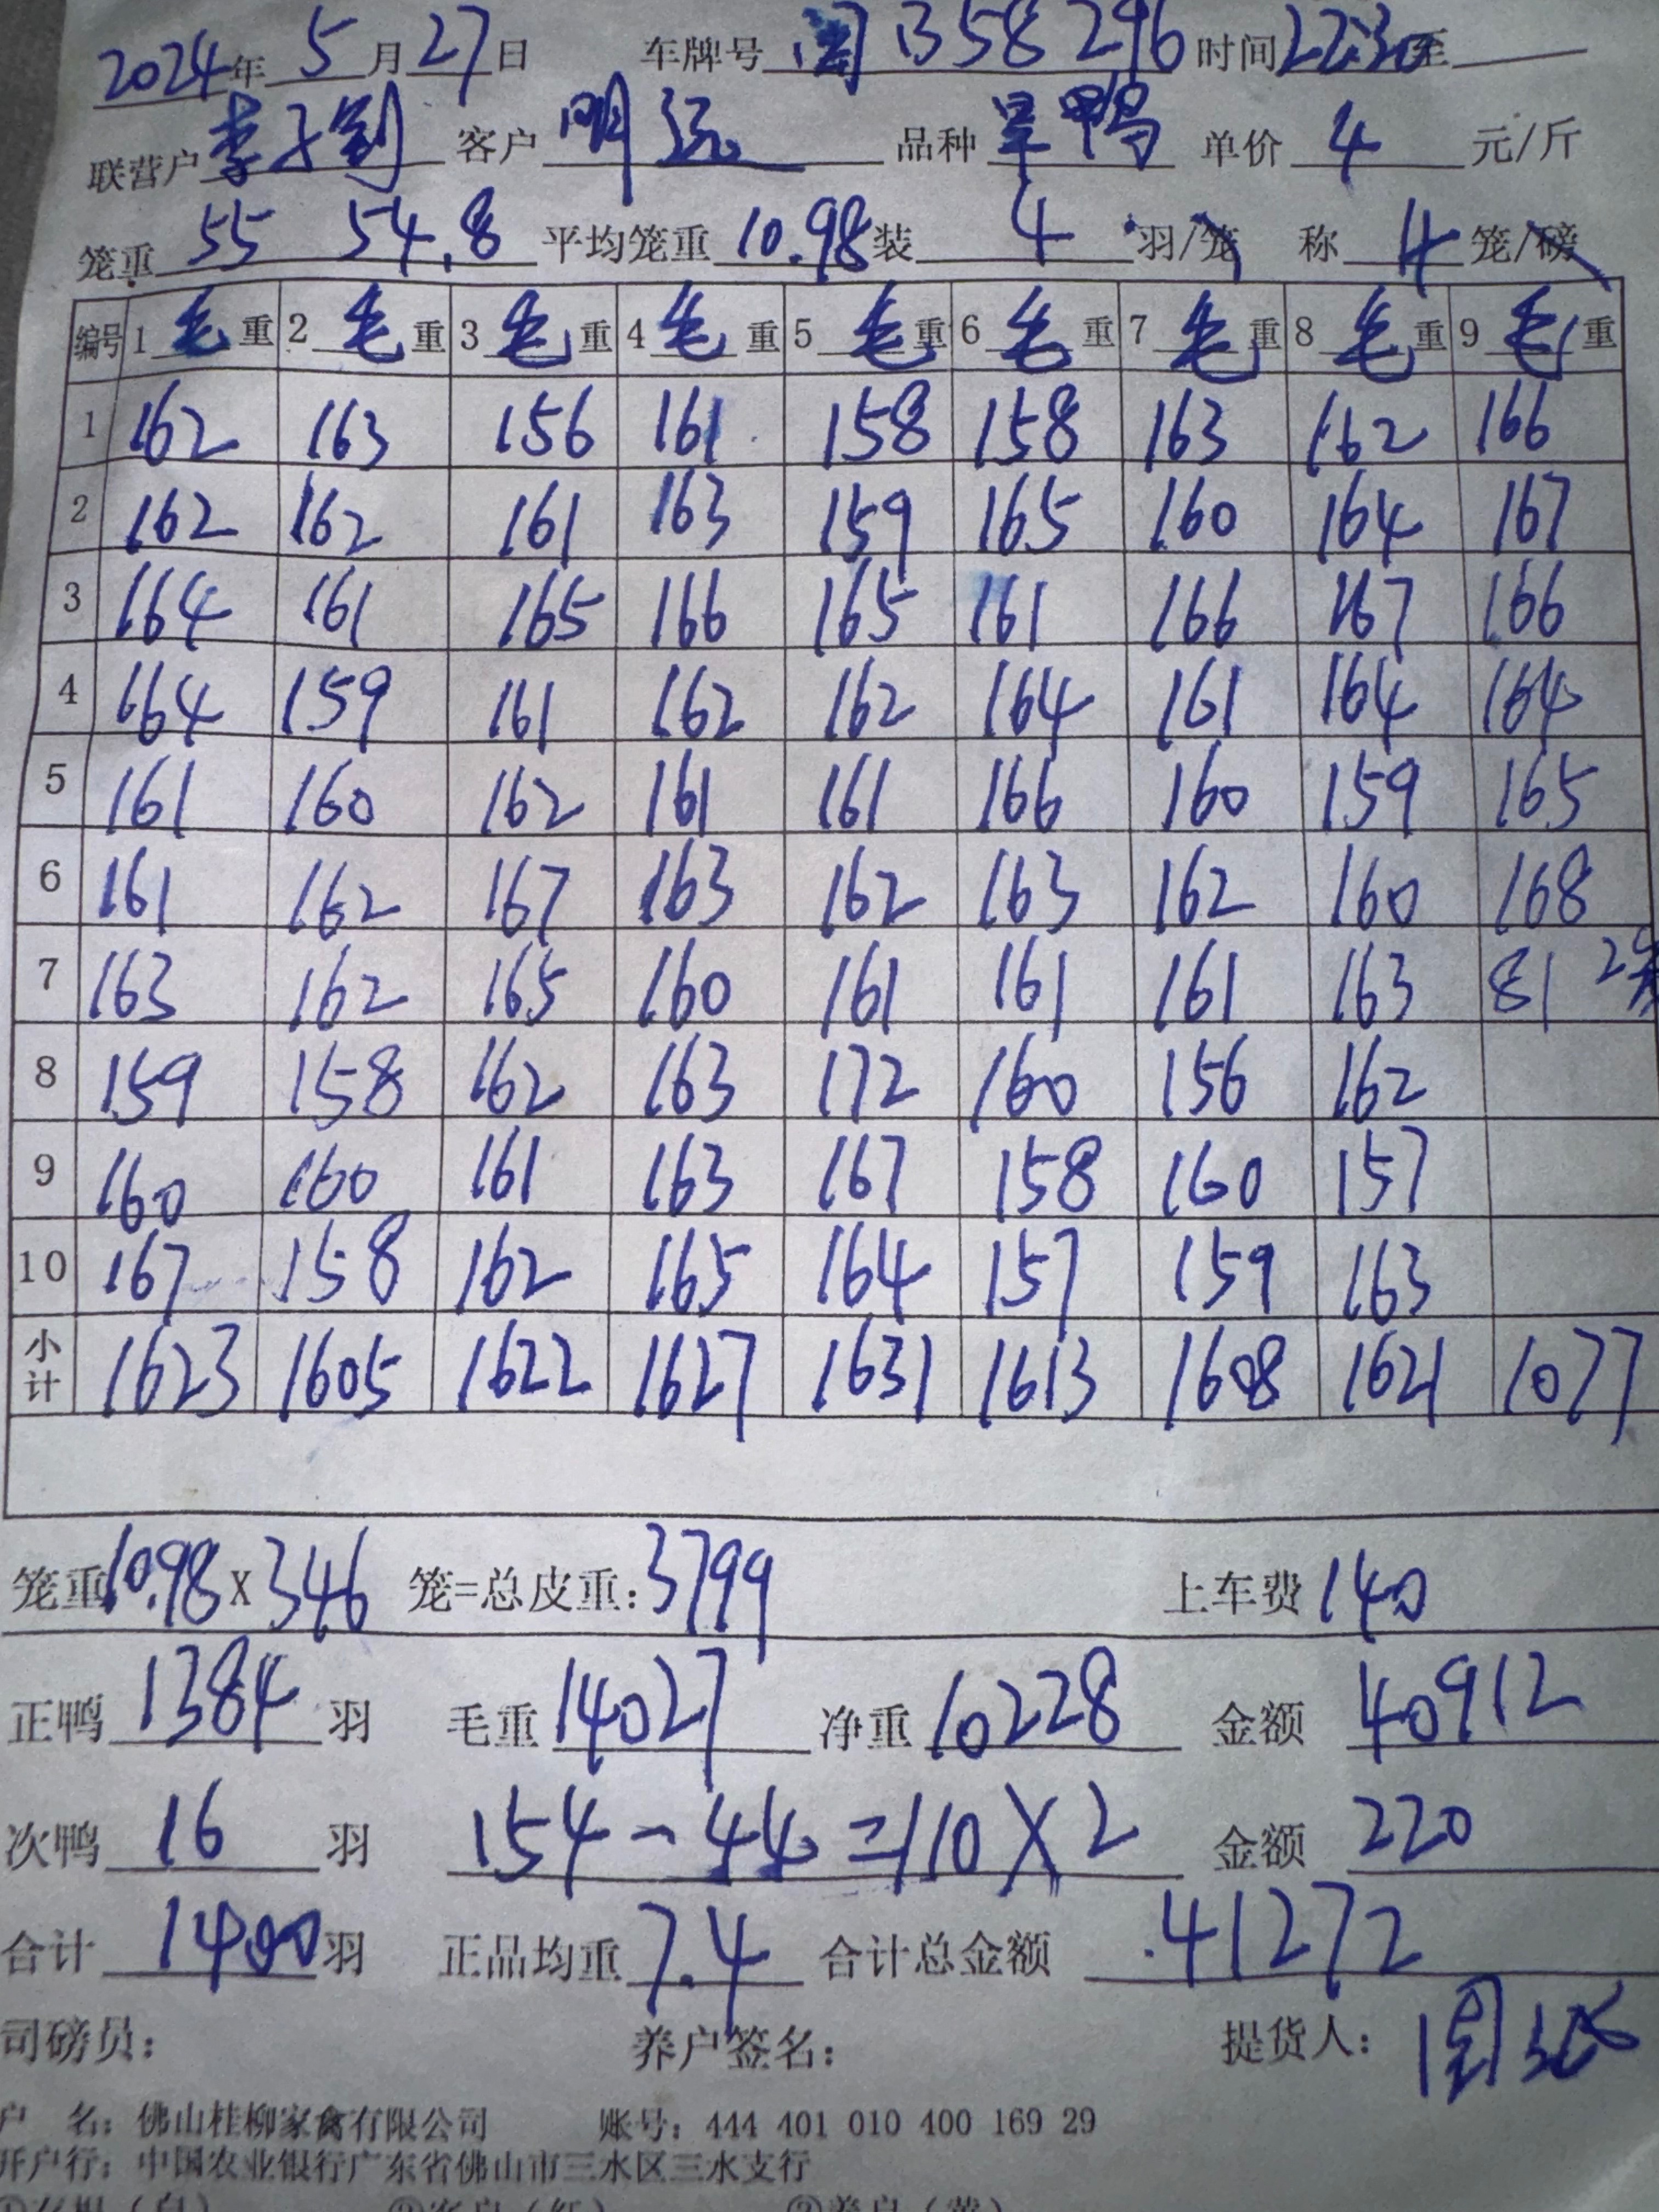 2024年 5月27日 车牌号 闽B58296 时间22:30至
联营户 李子钊 客户 明远 品种 旱鸭 单价 4 元/斤
笼重 55 54.8 平均笼重 10.98 装 4 羽/笼 称 4 笼/磅
编号 1毛重 2毛重 3毛重 4毛重 5毛重 6毛重 7毛重 8毛重 9毛重
1 162 163 156 161 158 158 163 162 166
2 162 162 161 163 159 165 160 164 167
3 164 161 165 166 165 161 166 167 166
4 164 159 161 162 162 164 161 164 164
5 161 160 162 161 161 166 160 159 165
6 161 162 167 163 162 163 162 160 168
7 163 162 165 160 161 161 161 163 81 2
8 159 158 162 163 172 160 156 162
9 160 160 161 163 167 158 160 157
10 167 158 162 165 164 157 159 163
小计 1623 1605 1622 1627 1631 1613 1608 1621 1077
笼重10.98X346 笼=总皮重:3799 上车费 140
正鸭 1384 羽 毛重 14027 净重 10228 金额 40912
次鸭 16 羽 154-44=110X2 金额 220
合计 1400 羽 正品均重 7.4 合计总金额 41272
司磅员: 养户签名: 提货人:
户 名: 佛山桂柳家禽有限公司 账号: 444 401 010 400 169 29
开户行: 中国农业银行广东省佛山市三水区三水支行